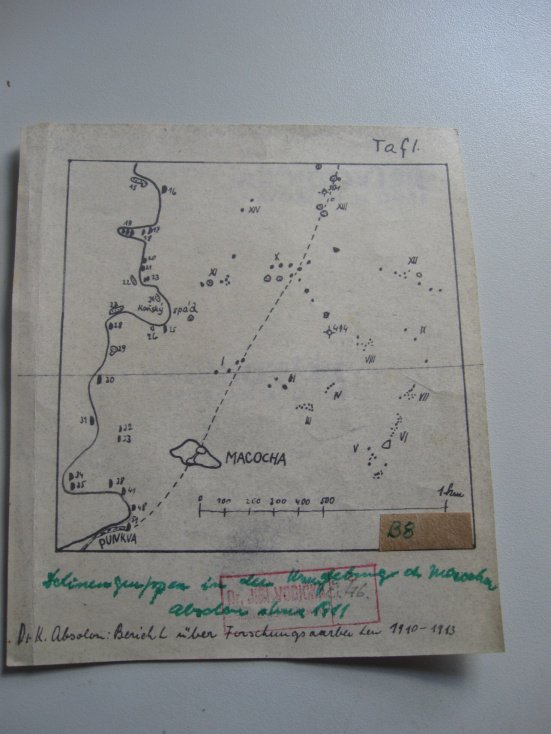 Taf 1.
15
16
XIV
XIII
18
17
19
20
21
22
23
24
Konský
spád
XI
X
XII
27
28
26
25
29
414
IX
VIII
I
30
II
IV
VII
III
31
32
33
VI
V
MACOCHA
34
35
38
41
48
51
PUNKVA
0 100 200 300 400 500 1 km
B8
Dolinengruppen in der Umgebung d. Macocha
Absolon 1911
Dr. K. Absolon: Bericht über Forschungsarbeiten 1910-1913